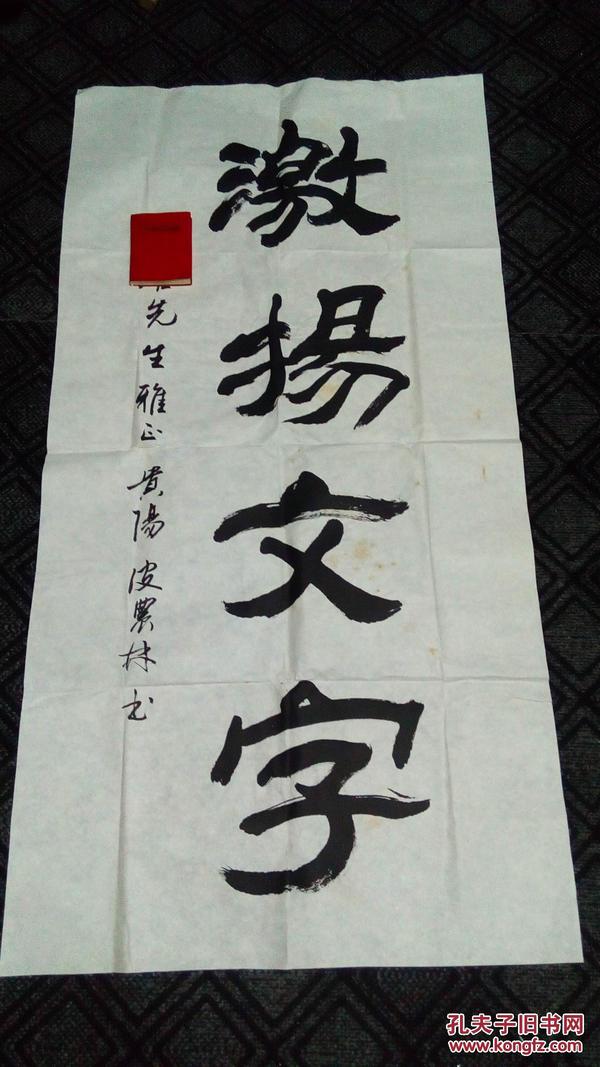 激揚文字
先生雅正 貴陽 皮農林书
孔夫子旧书网
www.kongfz.com